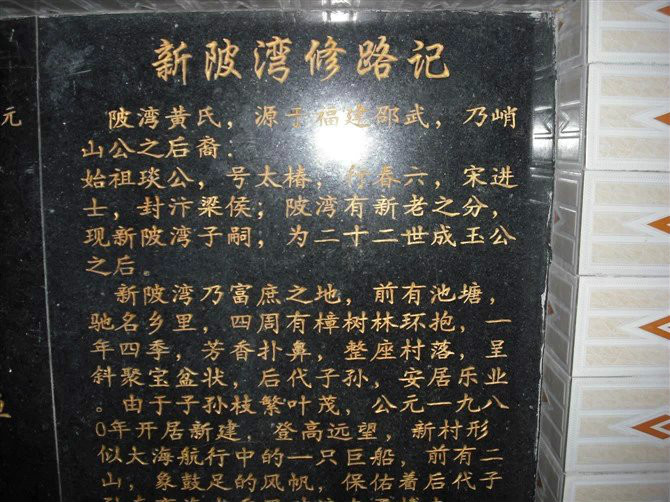 新陂湾修路记
陂湾黄氏，源于福建邵武，乃峭
山公之后裔：
始祖琰公，号太椿，行春六，宋进
士，封汴梁侯；陂湾有新老之分，
现新陂湾子嗣，为二十二世成玉公
之后。
新陂湾乃富庶之地，前有池塘，
驰名乡里，四周有樟树林环抱，一
年四季，芳香扑鼻，整座村落，呈
斜聚宝盆状，后代子孙，安居乐业
。由于子孙枝繁叶茂，公元一九八
0年开居新建，登高远望，新村形
似大海航行中的一只巨船，前有二
山，象鼓足的风帆，保佑着后代子
元